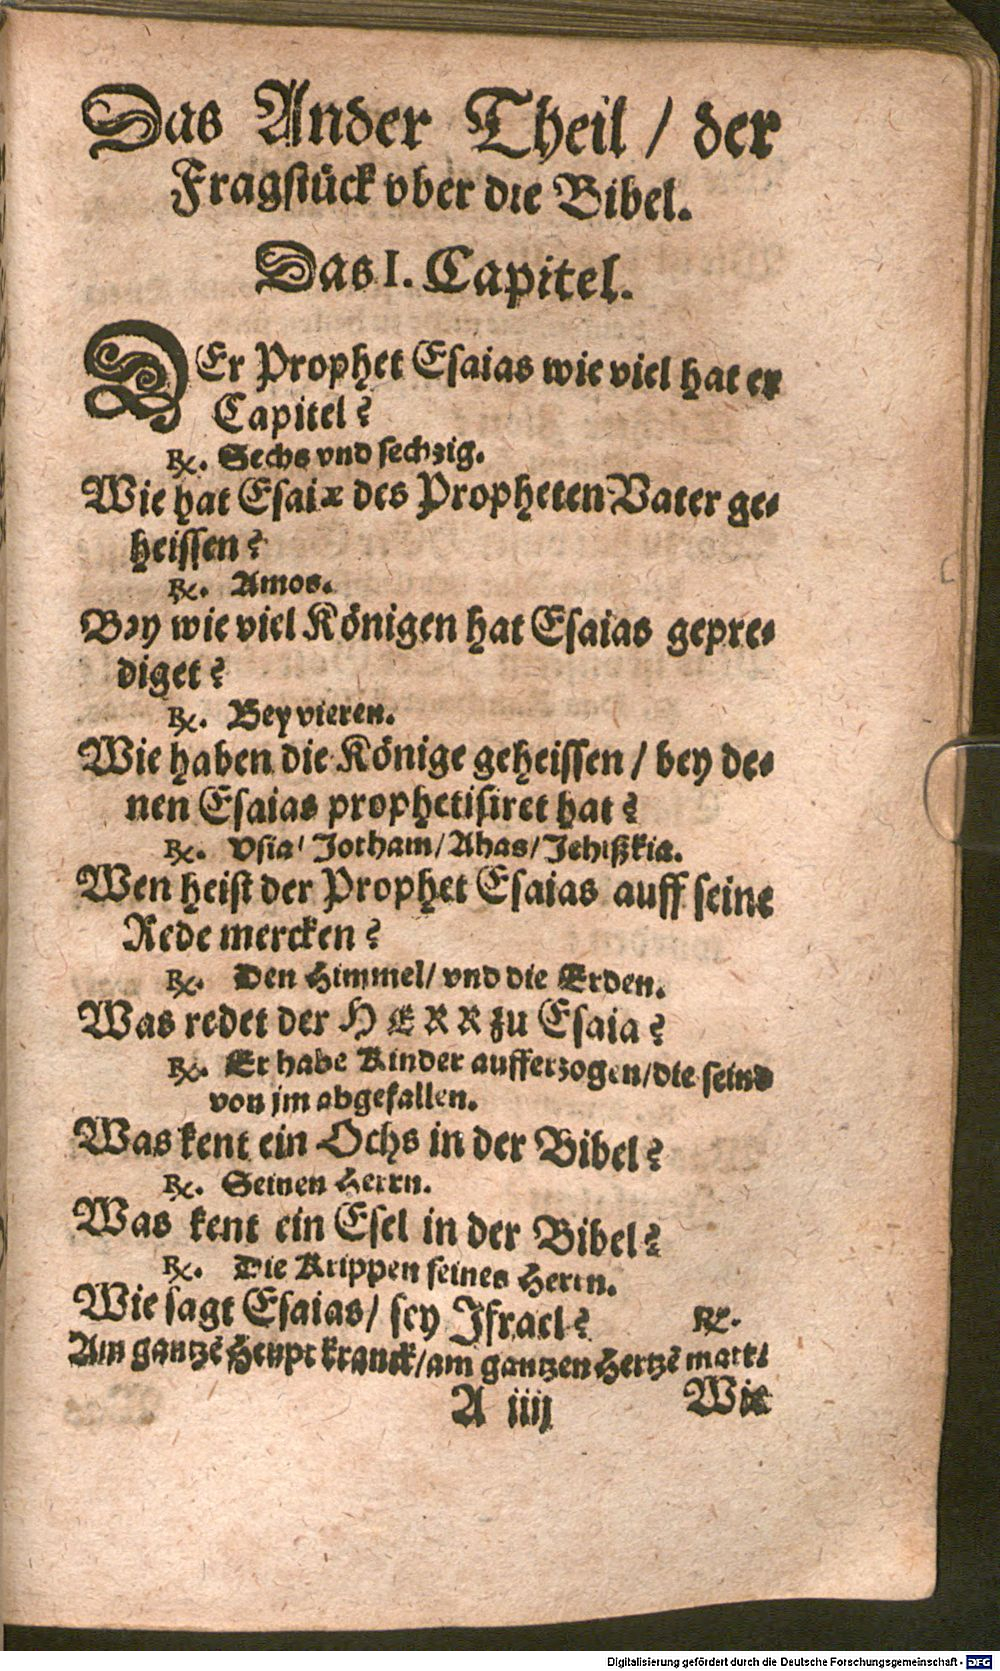 Das Ander Theil / der
Fragſtück vber die Bibel.
Das I. Capitel.
DEr Prophet Eſaias wie viel hat er
Capitel?
℞. Sechs vnd ſechzig.
Wie hat Eſaiæ des Propheten Vater ge⸗
heiſſen?
℞. Amos.
Bey wie viel Königen hat Eſaias gepre⸗
diget?
℞. Bey vieren.
Wie haben die Könige geheiſſen / bey de⸗
nen Eſaias prophetiſiret hat?
℞. Vſia/ Jotham/ Ahas/ Jehißkia.
Wen heiſt der Prophet Eſaias auff ſeine
Rede mercken?
℞. Den Himmel/ vnd die Erden.
Was redet der HERR zu Eſaia?
℞. Er habe Kinder aufferzogen/ die ſeind
von jm abgefallen.
Was kent ein Ochs in der Bibel?
℞. Seinen Herrn.
Was kent ein Eſel in der Bibel?
℞. Die Krippen ſeines Herrn.
Wie ſagt Eſaias/ ſey Iſrael? ℞.
Am gantzē Heupt kranck/ am gantzen Hertzē matt/
A iiij Wie
Digitalisierung gefördert durch die Deutsche Forschungsgemeinschaft - DFG